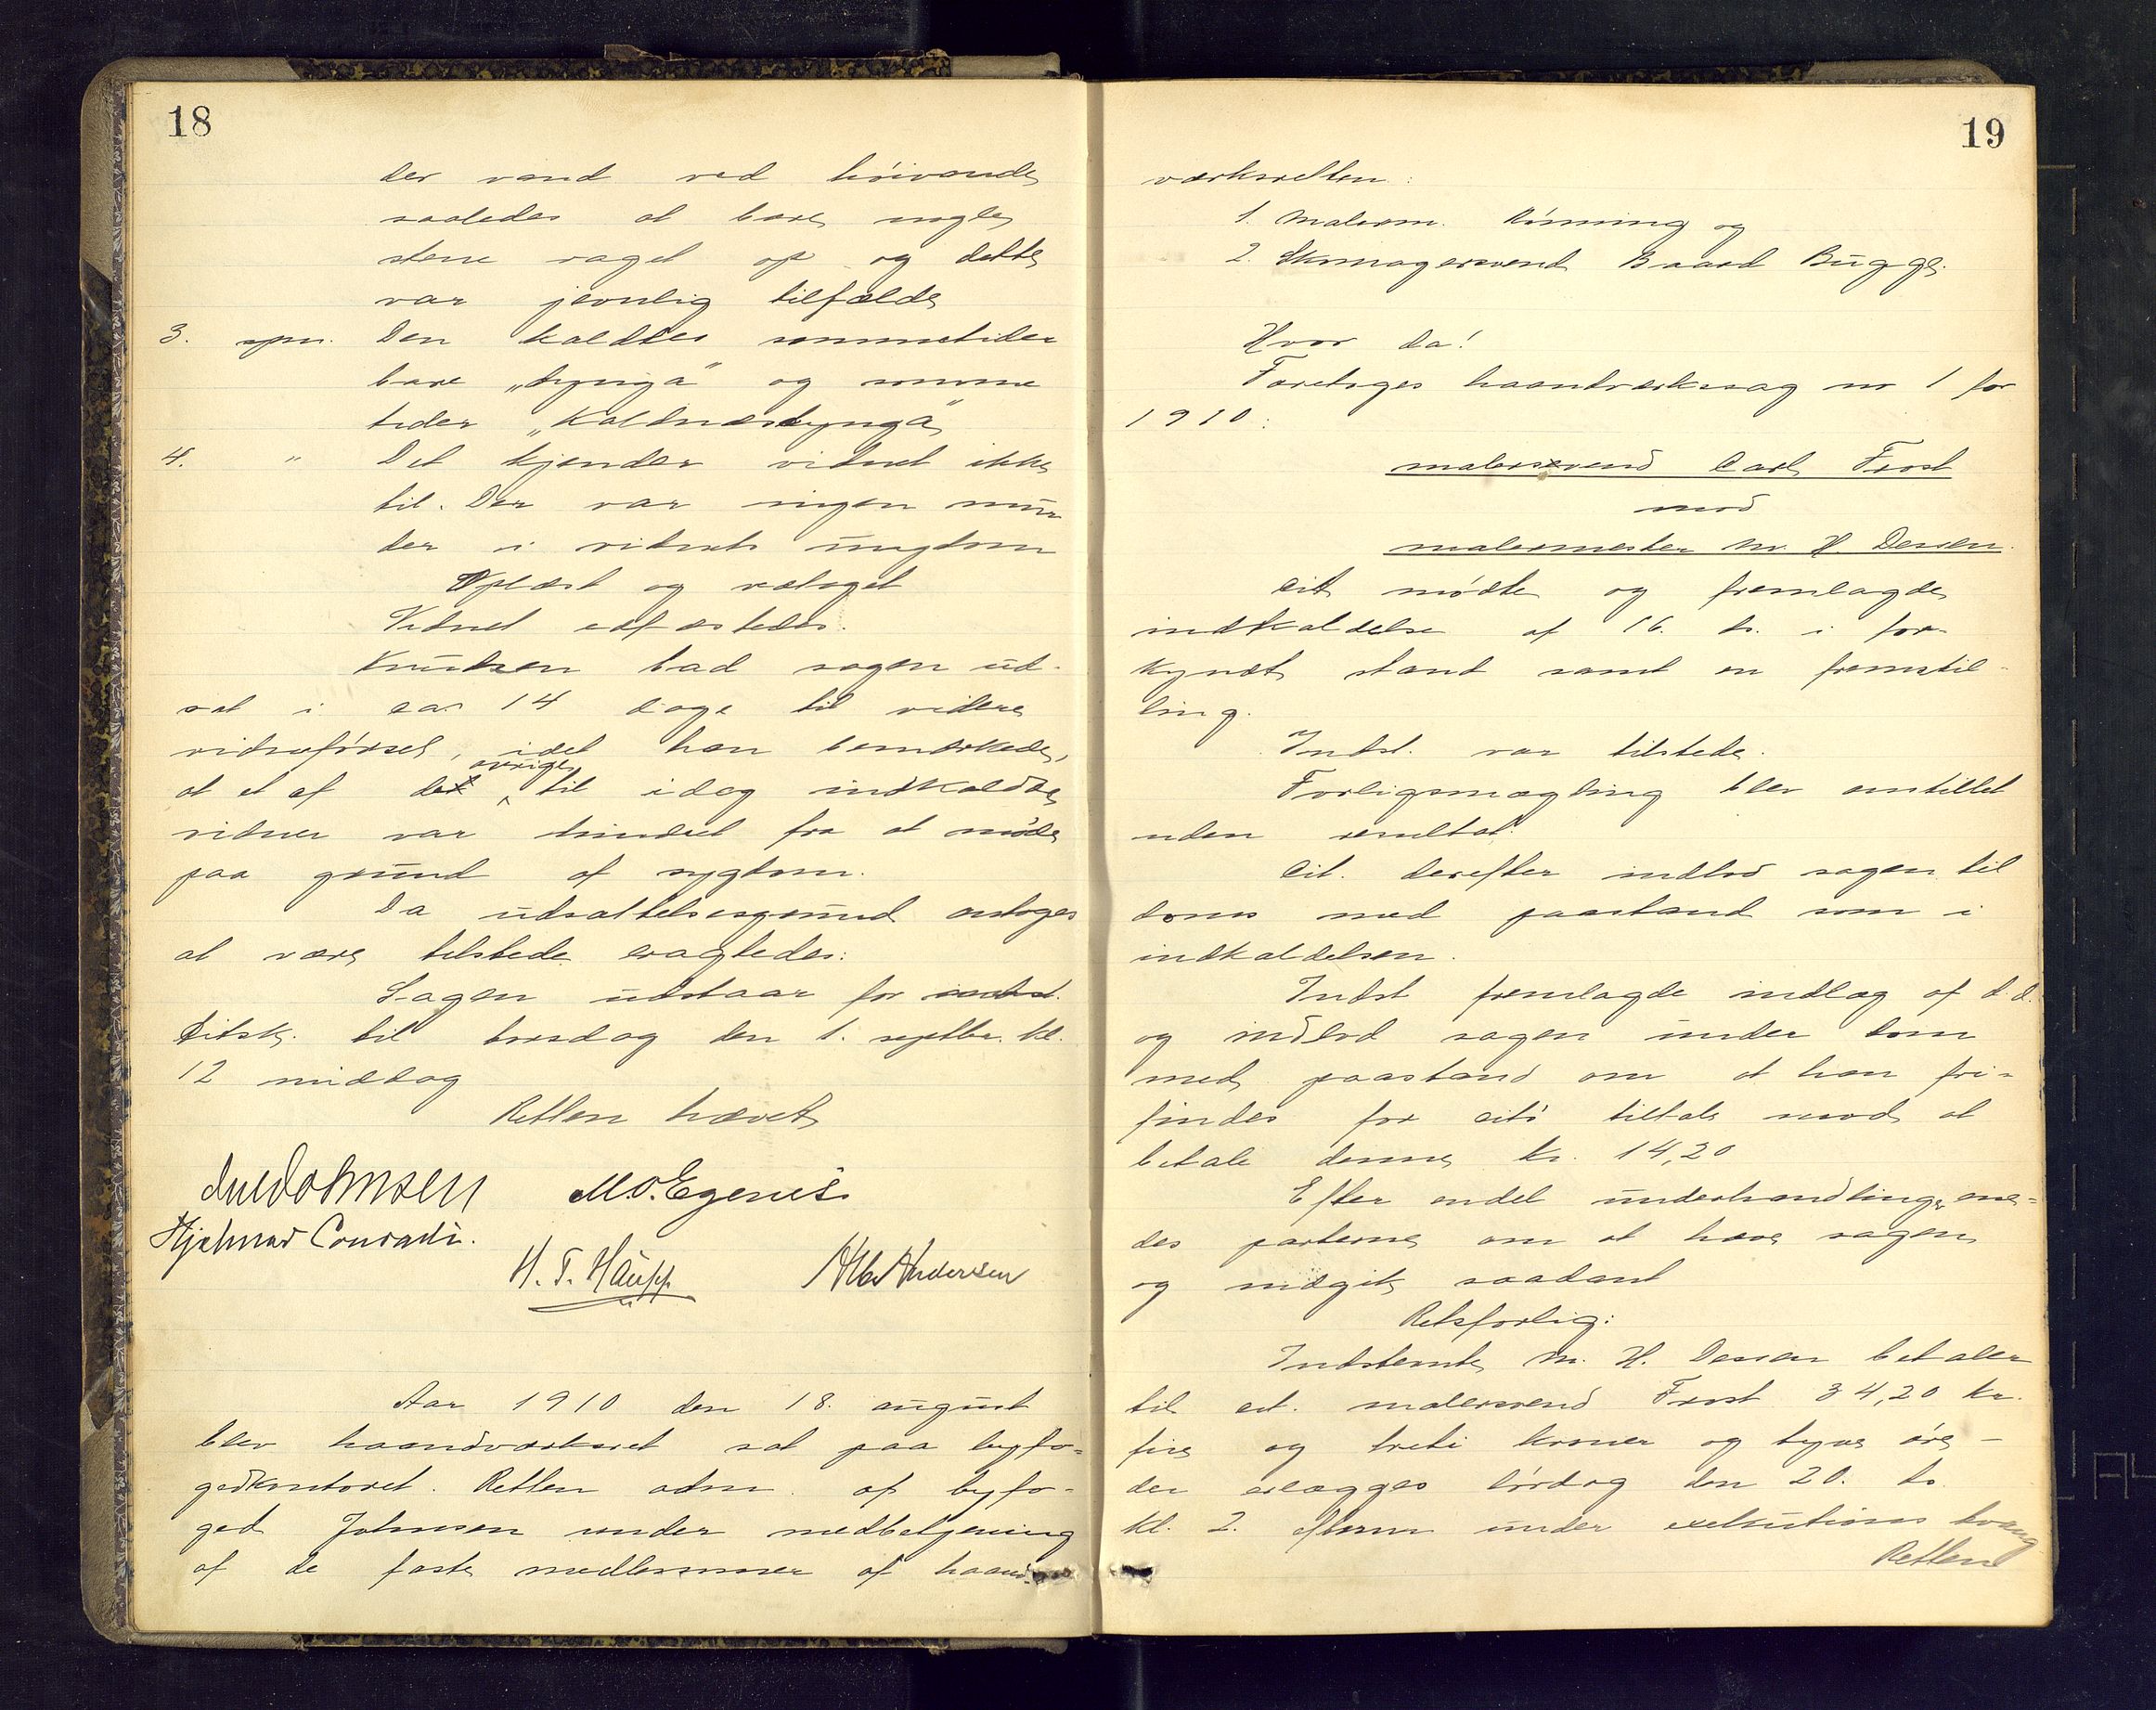 18
der vand ved høivande
saaledes at bare nogle
stene raget op og dette
var jevnlig tilfælde
3. spm. Den kaldtes sommetider
bare „tynga" og somme
tider „Kaldnæstynga"
4. " Det kjender vidnet ikke
til. Der var ingen mud
der i vidnets ungdom
Oplæst og vedtaget
Vidnet edfæstedes.
Knudsen bad sagen ud-
sat i ca. 14 dage til videre
vidneførsel, idet han bemærkede,
at et af de øvrige til idag indkaldte
vidner var hindret fra at møde
paa grund af sygdom.
Da udsættelsesgrund antoges
at være tilstede eragtedes:
Sagen udstaar for
Citsk. til torsdag den 1. septbr. kl.
12 middag
Retten hævet
Johnsen M. O. Egenes
Hjalmar Conradi.
H. T. Haupp Alb Andersen
Aar 1910 den 18. august
blev haandværksret sat paa byfo-
gedkontoret. Retten adm. af byfo-
ged Johnsen under medbetjening
af de faste medlemmer af haand-
19
værksretten:
1. Malerm. Rønning og
2. Skomagersvend Baard Bugge.
Hvor da!
Foretoges haandværkssag nr 1 for
1910:
malersvend Carl Frost
mod
malermester M. H. Dessen.
Cit mødte og fremlagde
indkaldelse af 16. ds. i for-
kyndt stand samt en fremstil-
ling.
Indst. var tilstede.
Forligsmægling blev anstillet
uden resultat.
Cit. derefter indlod sagen til
doms med paastand som i
indkaldelsen.
Indst fremlagde indlæg af d.d.
og indlod sagen under dom
med paastand om at han fri-
findes for cits tiltale mod at
betale denne kr. 14,20
Efter endel underhandlinger ene-
des parterne om at hæve sagen
og indgik saadant
Retsforlig:
Indstevnte M. H. Dessen betaler
til cit. malersvend Frost 34,20 kr.
fire og treti kroner og tyve øre –
der erlægges lørdag den 20. ds
kl. 2. efterm under exekutions tvang
Retten